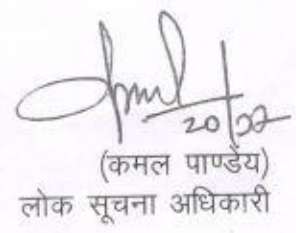 20/02
(कमल पाण्डेय)
लोक सूचना अधिकारी